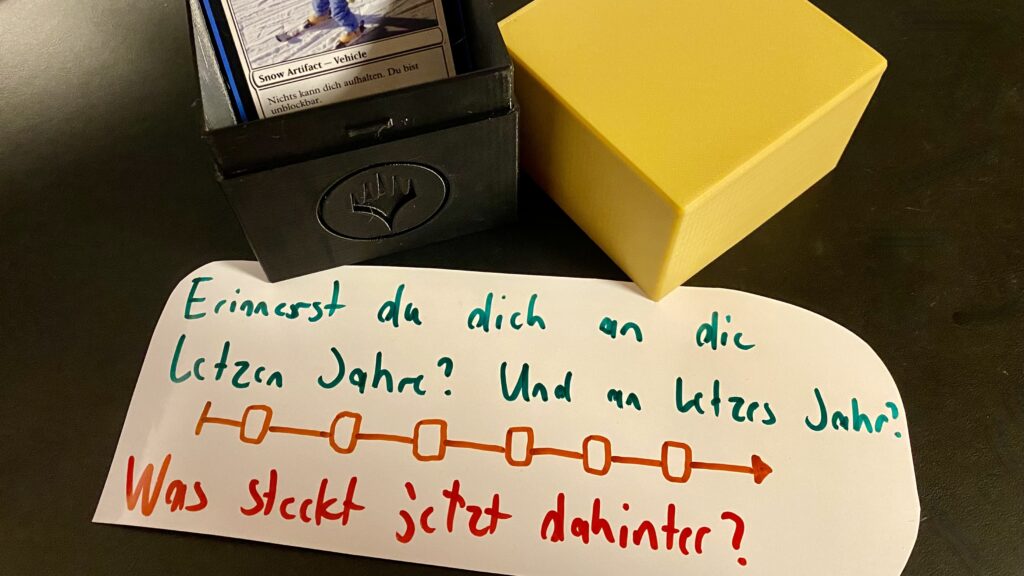 Snow Artifact — Vehicle
Nichts kann dich aufhalten. Du bist
unblockbar.
Erinnerst du dich an die
letzen Jahre? Und an letzes Jahr?
Was steckt jetzt dahinter?